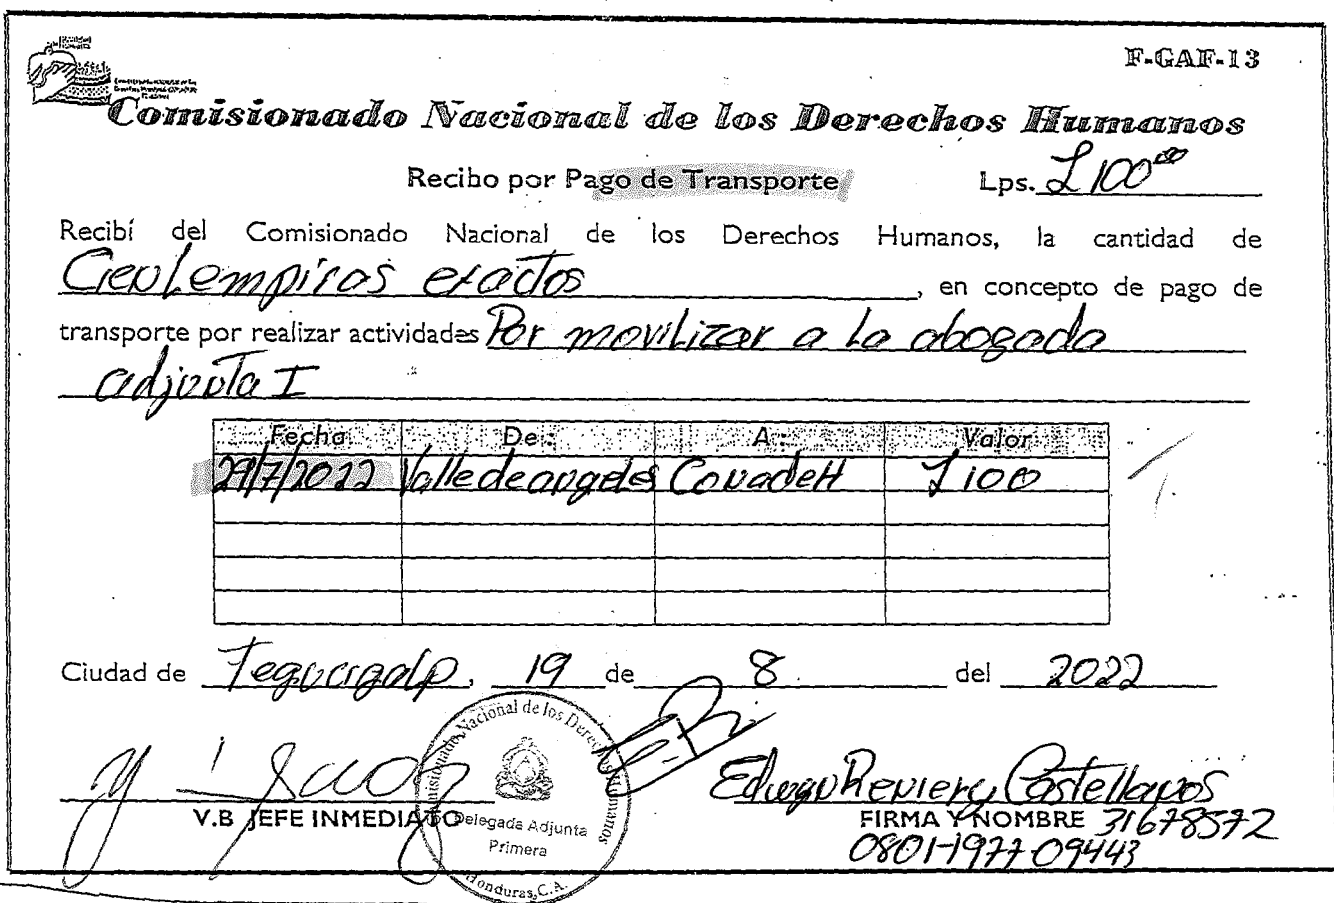 F-GAF-13
Comisionado Nacional de los Derechos Humanos
Recibo por Pago de Transporte Lps. L 100.00
Recibí del Comisionado Nacional de los Derechos Humanos, la cantidad de
Cien Lempiras exactos, en concepto de pago de
transporte por realizar actividades Por movilizar a la abogada
adjunta I
Fecha De: A: Valor
29/7/2022 Valle de angeles ConadeH L 100
Ciudad de Tegucigalp, 19 de 8 del 2022
V.B JEFE INMEDIATO
Comisionado Nacional de los Derechos Humanos
Delegada Adjunta
Primera
Honduras, C.A.
Castellanos
FIRMA Y NOMBRE 31678572
0801-1977-09443